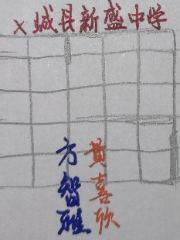 ×城县新盛中学
黄喜欣
方智雅